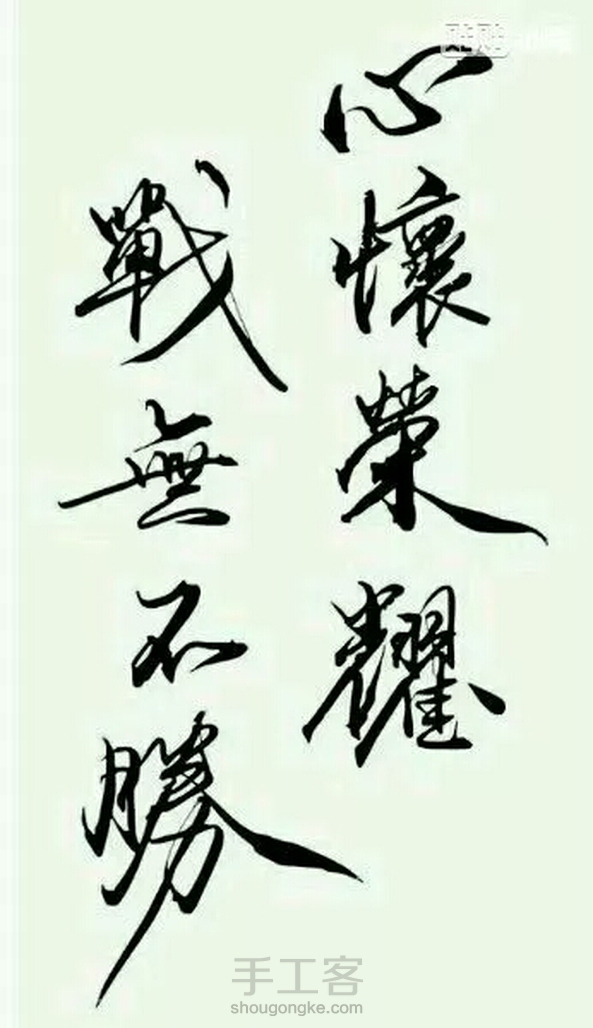 心懷榮耀
戰無不勝
手工客
shougongke.com